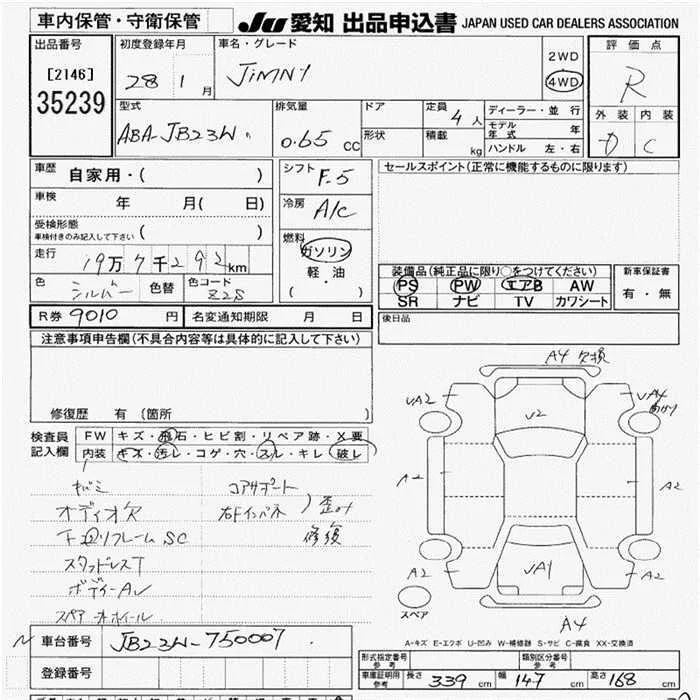 車内保管・守衛保管 JU 愛知 出品申込書 JAPAN USED CAR DEALERS ASSOCIATION
出品番号 初度登録年月 車名・グレード 評価点
[2146] 28 1 月 JIMNY 2WD 4WD R
35239
型式 排気量 ドア 定員 4 人 ディーラー・並行 外装 内装
ABA-JB23W 0.65 cc 形状 積載 kg モデル年式 年 D C
ハンドル 左・右
車歴 自家用・( ) シフト F-5 セールスポイント(正常に機能するものに限ります)
車検 年 月( 日) 冷房 A/C
受検形態
車検付きのみ記入して下さい ( )
燃料 ガソリン
走行 19万7千292km 軽・油
( )
装備品(純正品に限り○をつけてください) 新車保証書
色 シルバー 色替 色コード Z2S
PS PW エアB AW 有・無
SR ナビ TV カワシート
R券 9010 円 名変通知期限 月 日 後日品
注意事項申告欄(不具合内容等は具体的に記入して下さい)
修復歴 有 (箇所 )
A4 欠損
UA2 U2 UA4
検査員 FW キズ・飛石・ヒビ割・リペア跡・X要
記入欄 内装 キズ・汚レ・コゲ・穴・スレ・キレ・破レ
A2 A2
キバミ コアサポート
オディオ欠 右Fインパネ 歪み
下回リフレームSC 修復
スタッドレスT
ボディーAU
スペアホイール
A2 UA1 A2
スペア
A4
A-キズ E-エクボ U-凹み W-補修跡 S-サビ C-腐食 XX-交換済
車台番号 JB23W-750007
登録番号
形式指定番号 参考 類別区分番号 参考
車庫証明用 参考 長さ 339 cm 幅 147 cm 高さ 168 cm